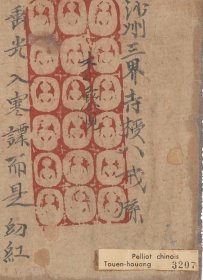 沙州三界寺授八戒牒
光入寒譚而是幻紅
Pelliot chinois
Touen-houang 3207